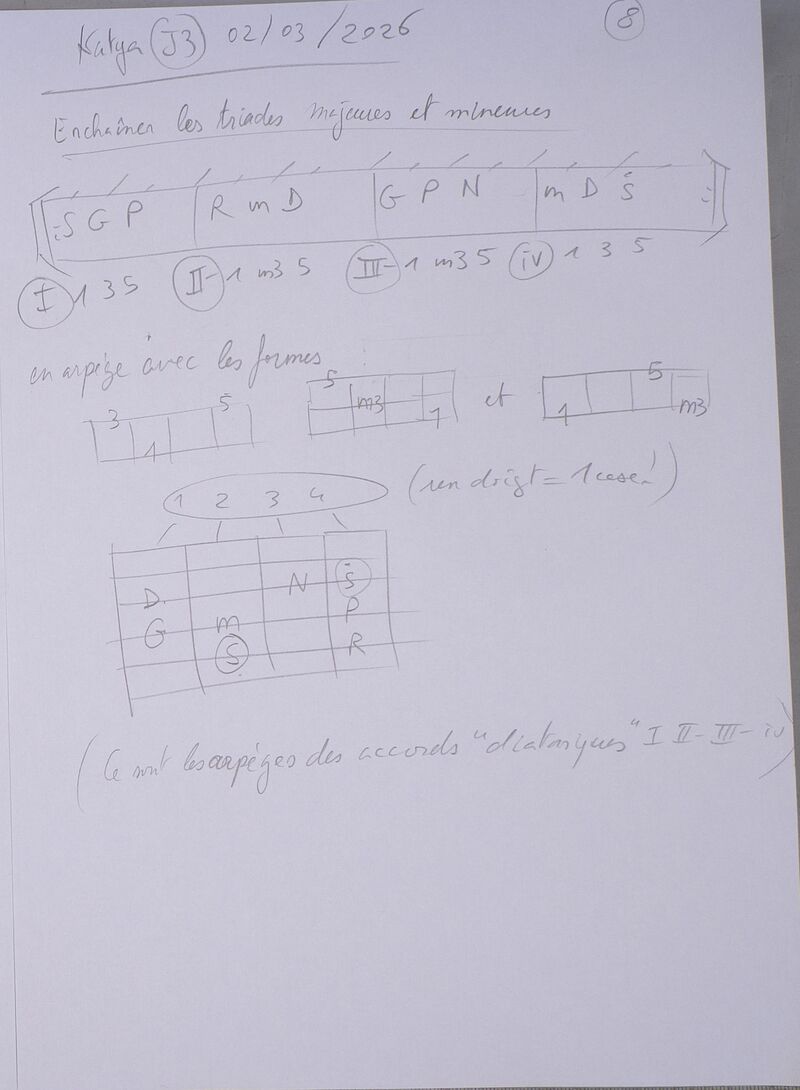 Katya J3 02/03/2026 8
Enchaîner les triades majeures et mineures
:S G P R m D G P N m D Ṡ :
I 1 3 5 II- 1 m3 5 III- 1 m3 5 iv 1 3 5
en arpège avec les formes :
3 5 5 m3 1 et 5 1 m3
1
1 2 3 4 (un doigt = 1 case!)
D N Ṡ
G m P
S R
(Ce sont les arpèges des accords "diatoniques" I II- III- iv)